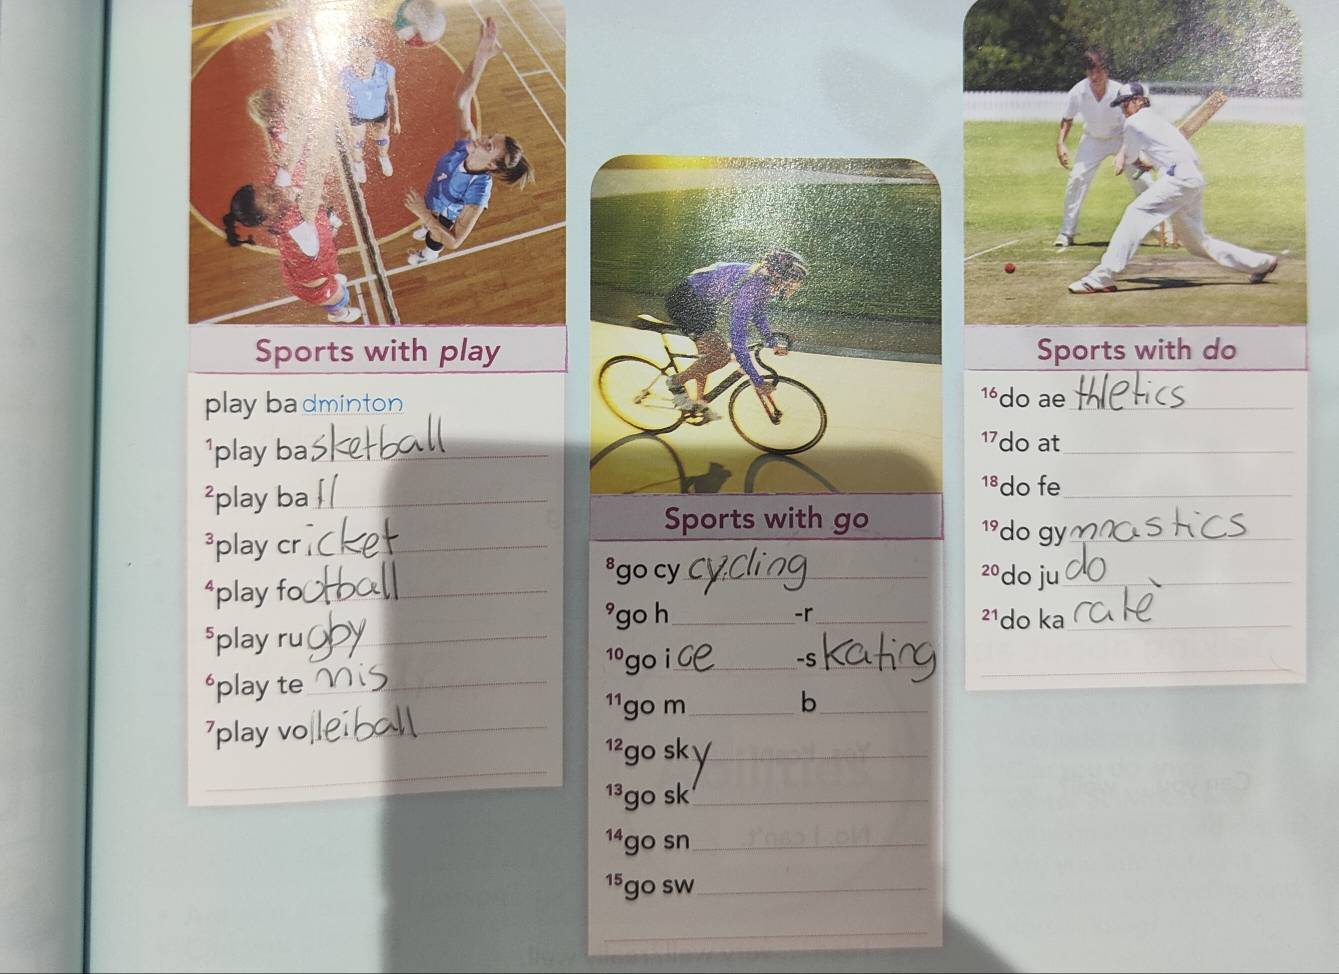 Sports with play
play badminton
1 play basketball
2 play ball
3 play cricket
4 play football
5 play rugby
6 play tennis
7 play volleiball
Sports with go
8 go cy cycling
9 go h -r
10 go ice -skating
11 go m b
12 go sky
13 go sk
14 go sn
15 go sw
Sports with do
16 do ae thletics
17 do at
18 do fe
19 do gymnastics
20 do judo
21 do karatè